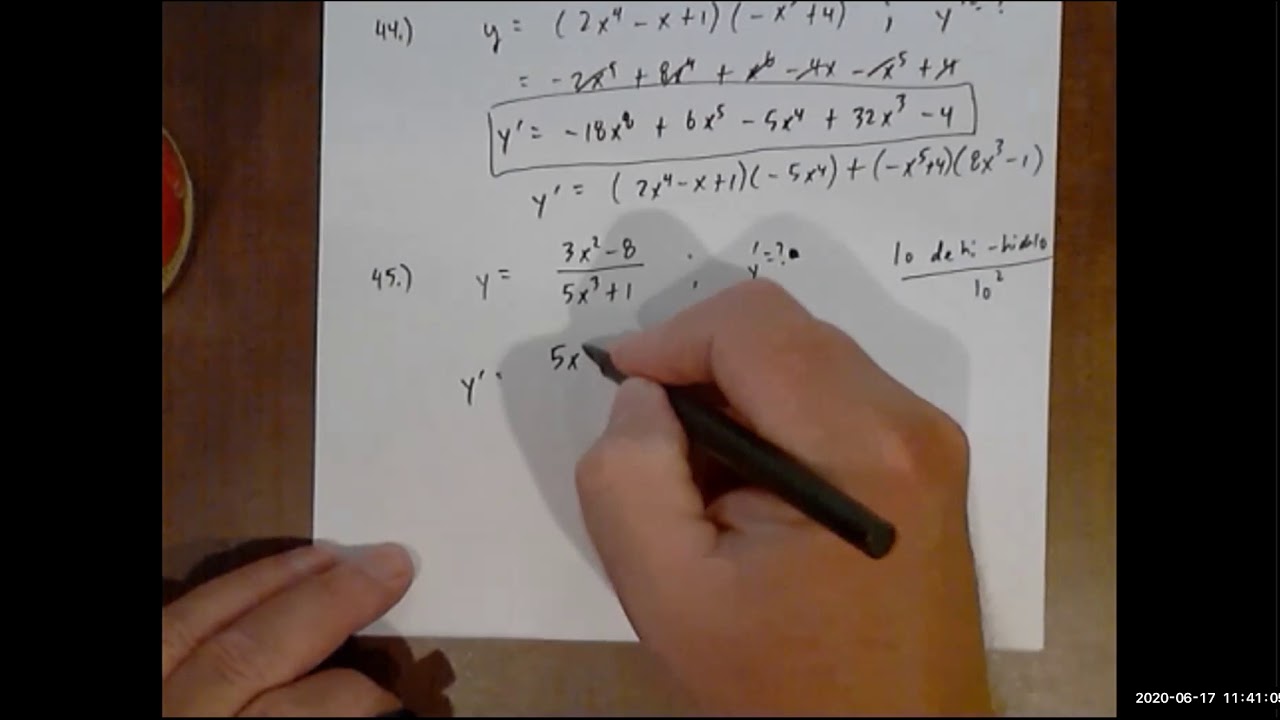 44.) y = (2x⁴ - x + 1)(-x⁵ + 4) ; y' = ?
= -2x⁹ + 8x⁴ + x⁶ - 4x - x⁵ + 4
y' = -18x⁸ + 6x⁵ - 5x⁴ + 32x³ - 4
y' = (2x⁴ - x + 1)(-5x⁴) + (-x⁵+4)(8x³ - 1)
45.) y = (3x² - 8)/(5x³ + 1) ; y' = ?
lo de hi - hi de lo
lo²
y' = 5x
2020-06-17 11:41:05